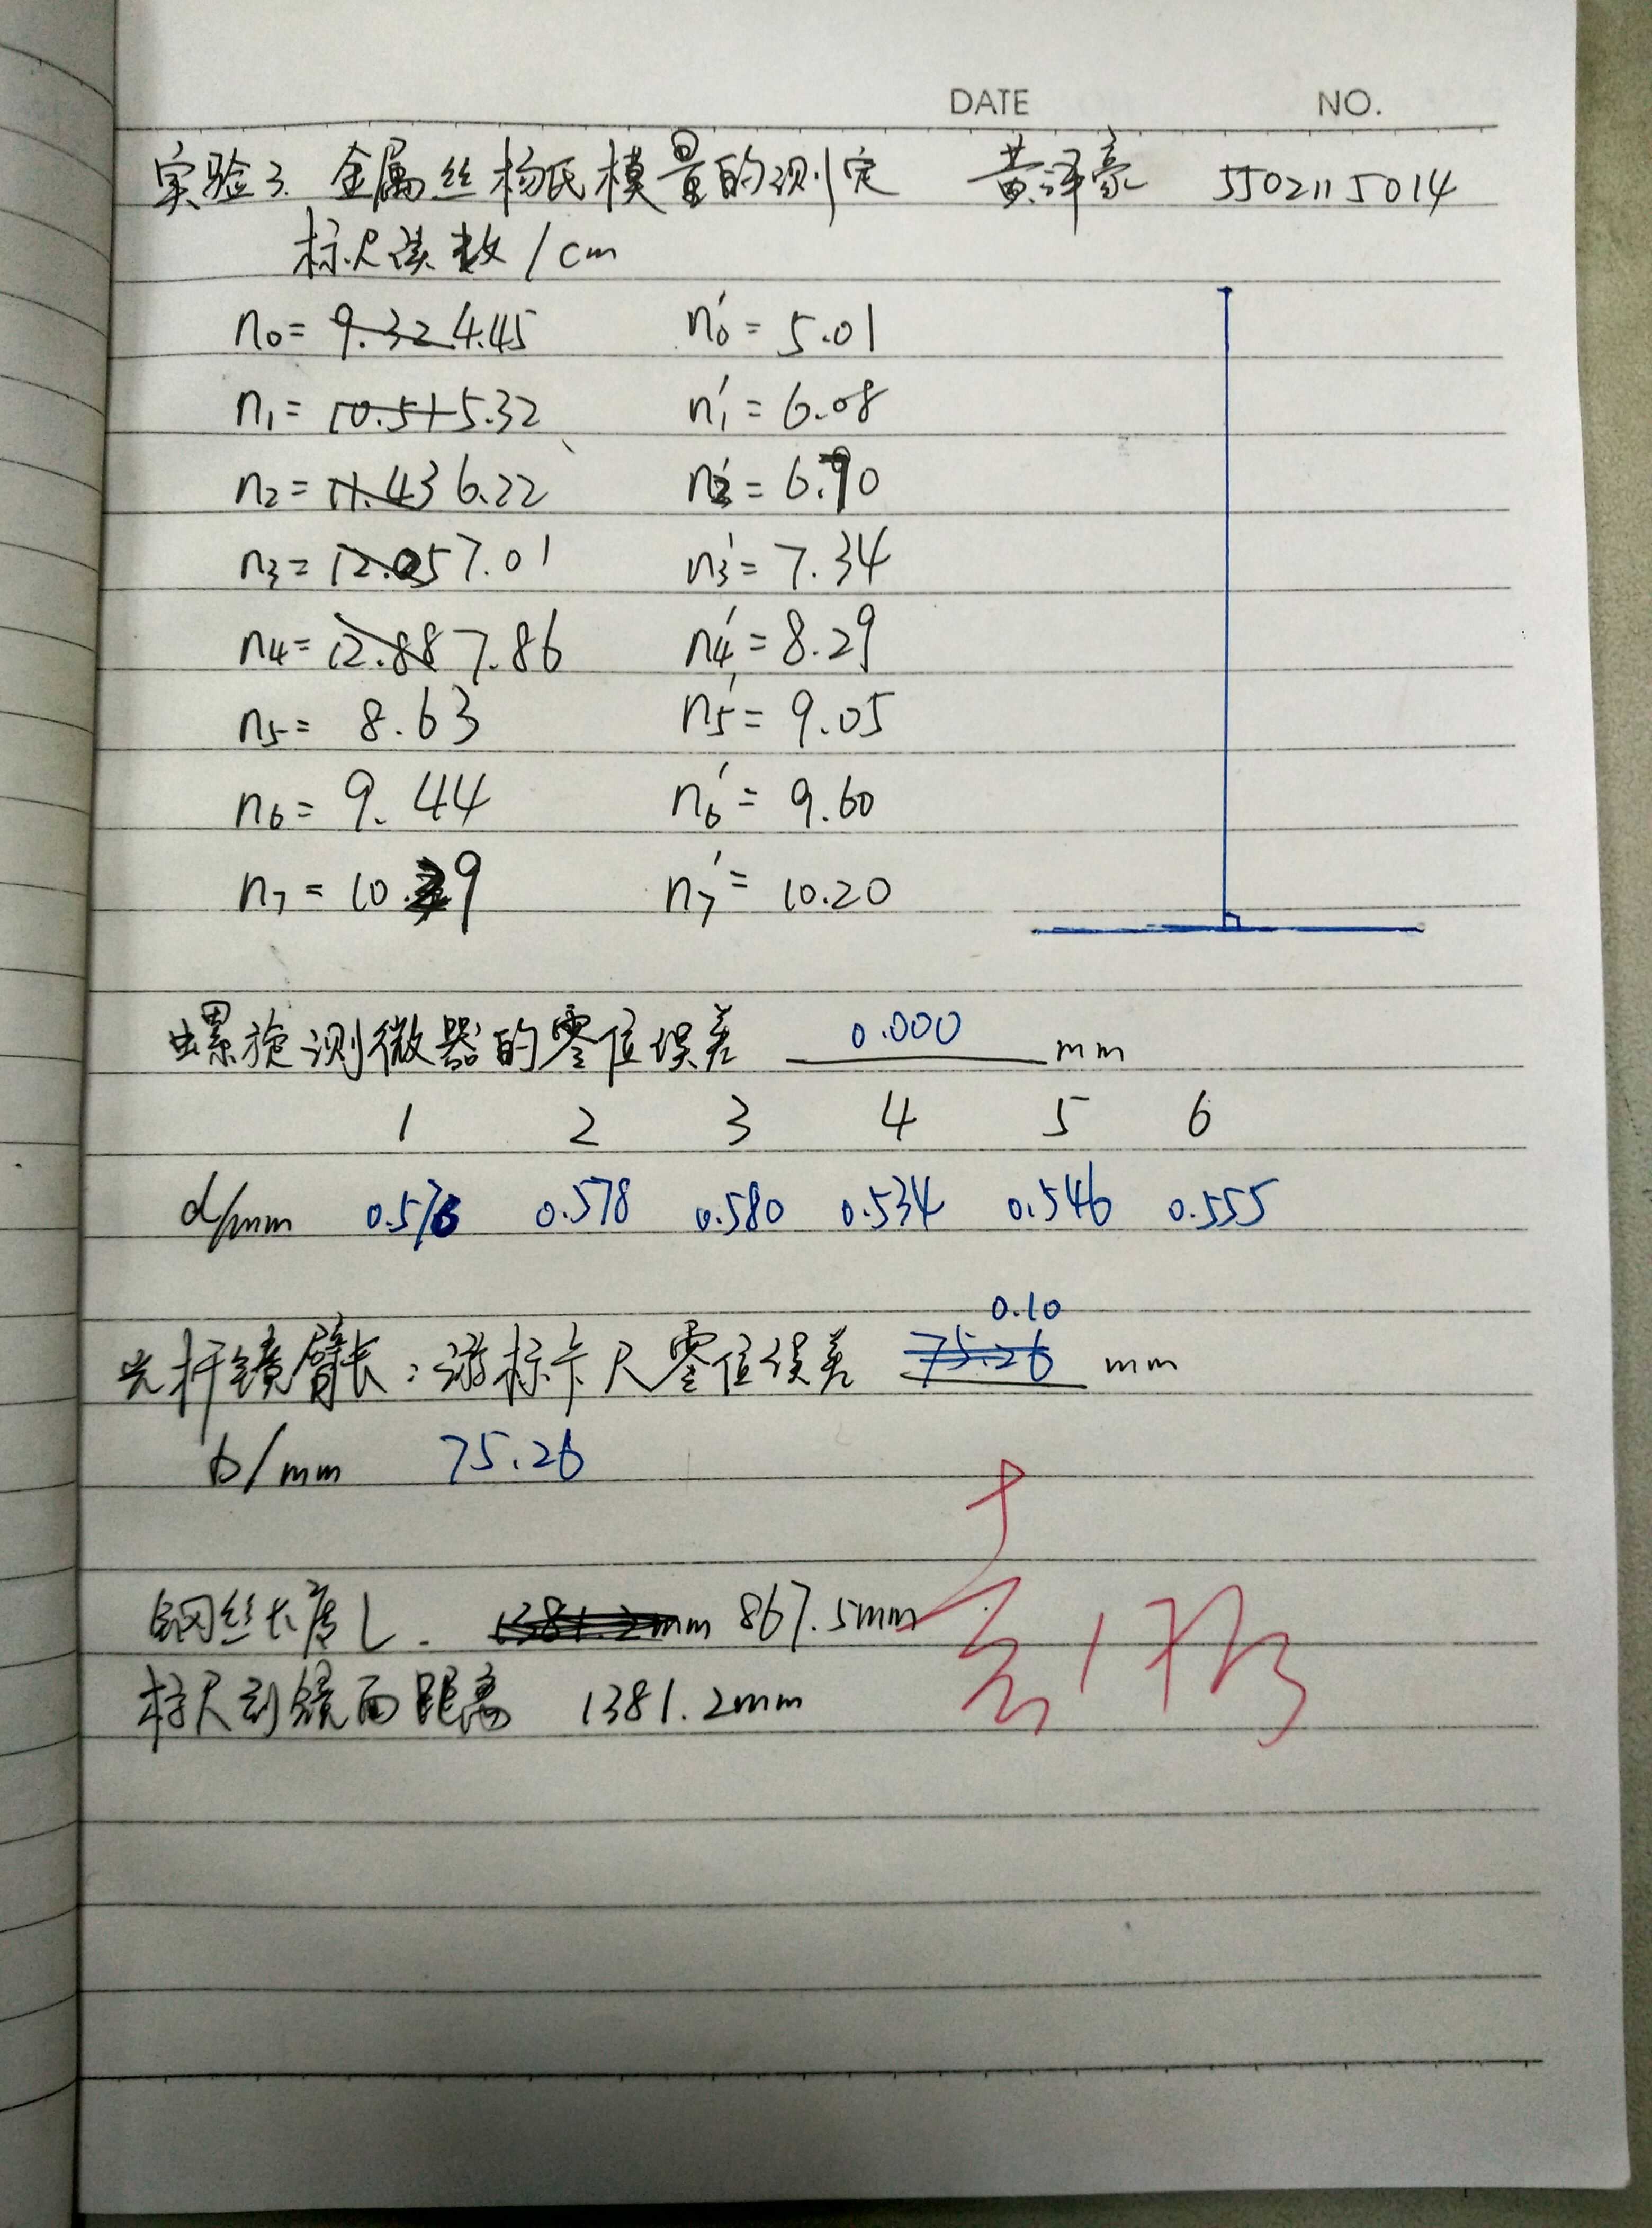 DATE NO.
实验3. 金属丝杨氏模量的测定 黄泽豪 5502115014
标尺读数/cm
n₀= 9.32 4.45 n₀′= 5.01
n₁= 10.51 5.32 n₁′= 6.08
n₂= 11.43 6.22 n₂′= 6.90
n₃= 12.05 7.01 n₃′= 7.34
n₄= 12.88 7.86 n₄′= 8.29
n₅= 8.63 n₅′= 9.05
n₆= 9.44 n₆′= 9.60
n₇= 10. 9 n₇′= 10.20
螺旋测微器的零位误差 0.000 mm
1 2 3 4 5 6
d/mm 0.576 0.578 0.580 0.534 0.546 0.555
0.10
光杆镜臂长:游标卡尺零位误差 75.26 mm
b/mm 75.26
钢丝长度L. 1381.2mm 867.5mm
标尺到镜面距离 1381.2mm